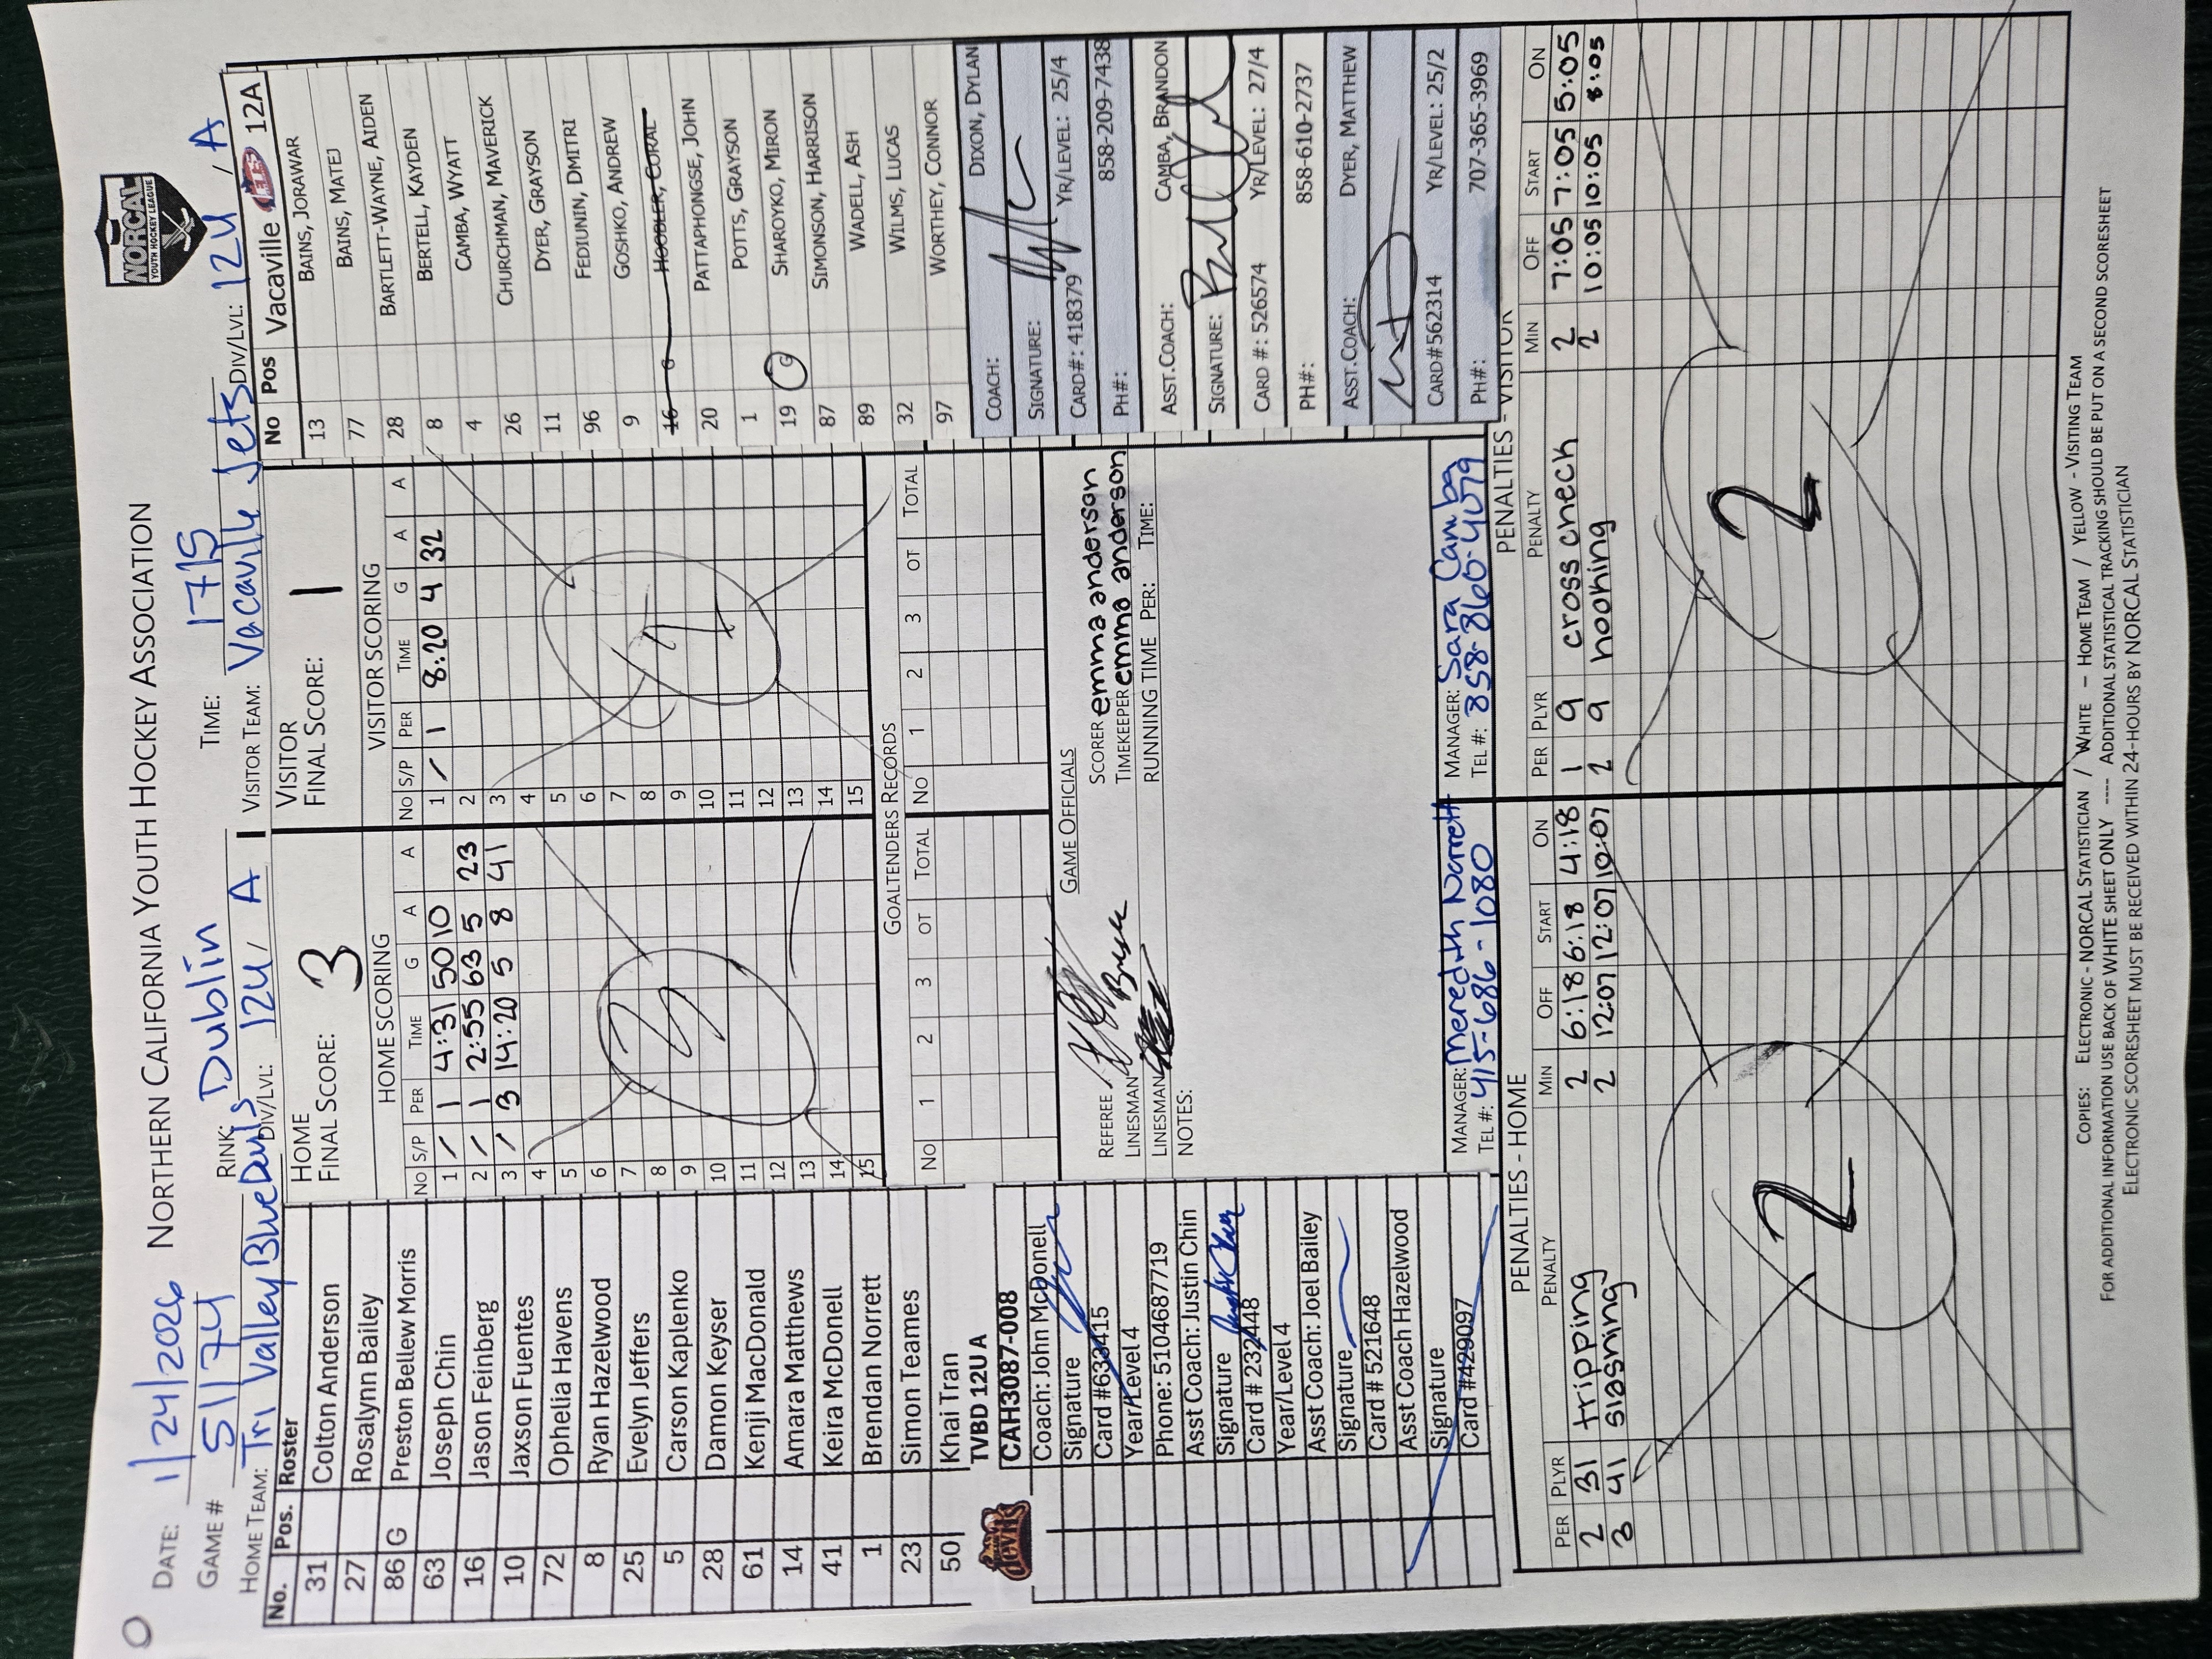 DATE: 1/24/2026 NORTHERN CALIFORNIA YOUTH HOCKEY ASSOCIATION
NORCAL
YOUTH HOCKEY LEAGUE
GAME # 51174 RINK: Dublin TIME: 1715
HOME TEAM: Tri Valley Blue Devils DIV/LVL: 12U / A VISITOR TEAM: Vacaville Jets DIV/LVL: 12U / A
No. Pos. Roster
31 Colton Anderson
27 Rosalynn Bailey
86 G Preston Bellew Morris
63 Joseph Chin
16 Jason Feinberg
10 Jaxson Fuentes
72 Ophelia Havens
8 Ryan Hazelwood
25 Evelyn Jeffers
5 Carson Kaplenko
28 Damon Keyser
61 Kenji MacDonald
14 Amara Matthews
41 Keira McDonell
1 Brendan Norrett
23 Simon Teames
50 Khai Tran
TVBD 12U A
devils
CAH3087-008
Coach: John McDonell
Signature
Card #633415
Year/Level 4
Phone: 5104687719
Asst Coach: Justin Chin
Signature
Card # 232448
Year/Level 4
Asst Coach: Joel Bailey
Signature
Card # 521648
Asst Coach Hazelwood
Signature
Card #429097
HOME
FINAL SCORE: 3
HOME SCORING
No S/P PER TIME G A A
1 / 1 4:31 50 10
2 / 1 2:55 63 5 23
3 / 3 14:20 5 8 41
4
5
6
7
8
9
10
11
12
13
14
15
3
VISITOR
FINAL SCORE: 1
VISITOR SCORING
No S/P PER TIME G A A
1 / 1 8:20 4 32
2
3
4
5
6
7
8
9
10
11
12
13
14
15
1
GOALTENDERS RECORDS
No 1 2 3 OT TOTAL No 1 2 3 OT TOTAL
GAME OFFICIALS
REFEREE
LINESMAN
LINESMAN
NOTES:
SCORER emma anderson
TIMEKEEPER emma anderson
RUNNING TIME PER: TIME:
MANAGER: Meredith Norrett
TEL #: 415-686-1080
MANAGER: Sara Camba
TEL #: 858-860-4079
No Pos Vacaville JETS 12A
13 BAINS, JORAWAR
77 BAINS, MATEJ
28 BARTLETT-WAYNE, AIDEN
8 BERTELL, KAYDEN
4 CAMBA, WYATT
26 CHURCHMAN, MAVERICK
11 DYER, GRAYSON
96 FEDIUNIN, DMITRI
9 GOSHKO, ANDREW
16 G HOOBLER, CORAL
20 PATTAPHONGSE, JOHN
1 POTTS, GRAYSON
19 G SHAROYKO, MIRON
87 SIMONSON, HARRISON
89 WADELL, ASH
32 WILMS, LUCAS
97 WORTHEY, CONNOR
COACH: DIXON, DYLAN
SIGNATURE:
CARD#: 418379 YR/LEVEL: 25/4
PH#: 858-209-7438
ASST.COACH: CAMBA, BRANDON
SIGNATURE:
CARD #: 526574 YR/LEVEL: 27/4
PH#: 858-610-2737
ASST.COACH: DYER, MATTHEW
CARD#562314 YR/LEVEL: 25/2
PH#: 707-365-3969
PENALTIES - HOME
PER PLYR PENALTY MIN OFF START ON
2 31 tripping 2 6:18 6:18 4:18
3 41 slashing 2 12:07 12:07 10:07
2
PENALTIES - VISITOR
PER PLYR PENALTY MIN OFF START ON
1 9 cross check 2 7:05 7:05 5:05
2 9 hooking 2 10:05 10:05 8:05
2
COPIES: ELECTRONIC - NORCAL STATISTICIAN / WHITE - HOME TEAM / YELLOW - VISITING TEAM
FOR ADDITIONAL INFORMATION USE BACK OF WHITE SHEET ONLY ---- ADDITIONAL STATISTICAL TRACKING SHOULD BE PUT ON A SECOND SCORESHEET
ELECTRONIC SCORESHEET MUST BE RECEIVED WITHIN 24-HOURS BY NORCAL STATISTICIAN